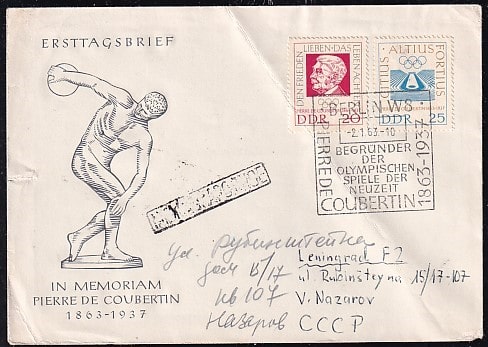 ERSTTAGSBRIEF
DEN FRIEDEN LIEBEN·DAS LEBEN ACHTEN
DDR 20
CITIUS · ALTIUS FORTIUS
DDR 25
BERLIN W8
-2.1.63.-10
BEGRÜNDER
DER
OLYMPISCHEN
SPIELE DER
NEUZEIT
PIERRE DE COUBERTIN 1863-1937
Ул. Рубинштейна
дом 15/17
кв 107
Назаров СССР
Leningrad F2
ul. Rubinsteyna 15/17-107
V. Nazarov
IN MEMORIAM
PIERRE DE COUBERTIN
1863-1937